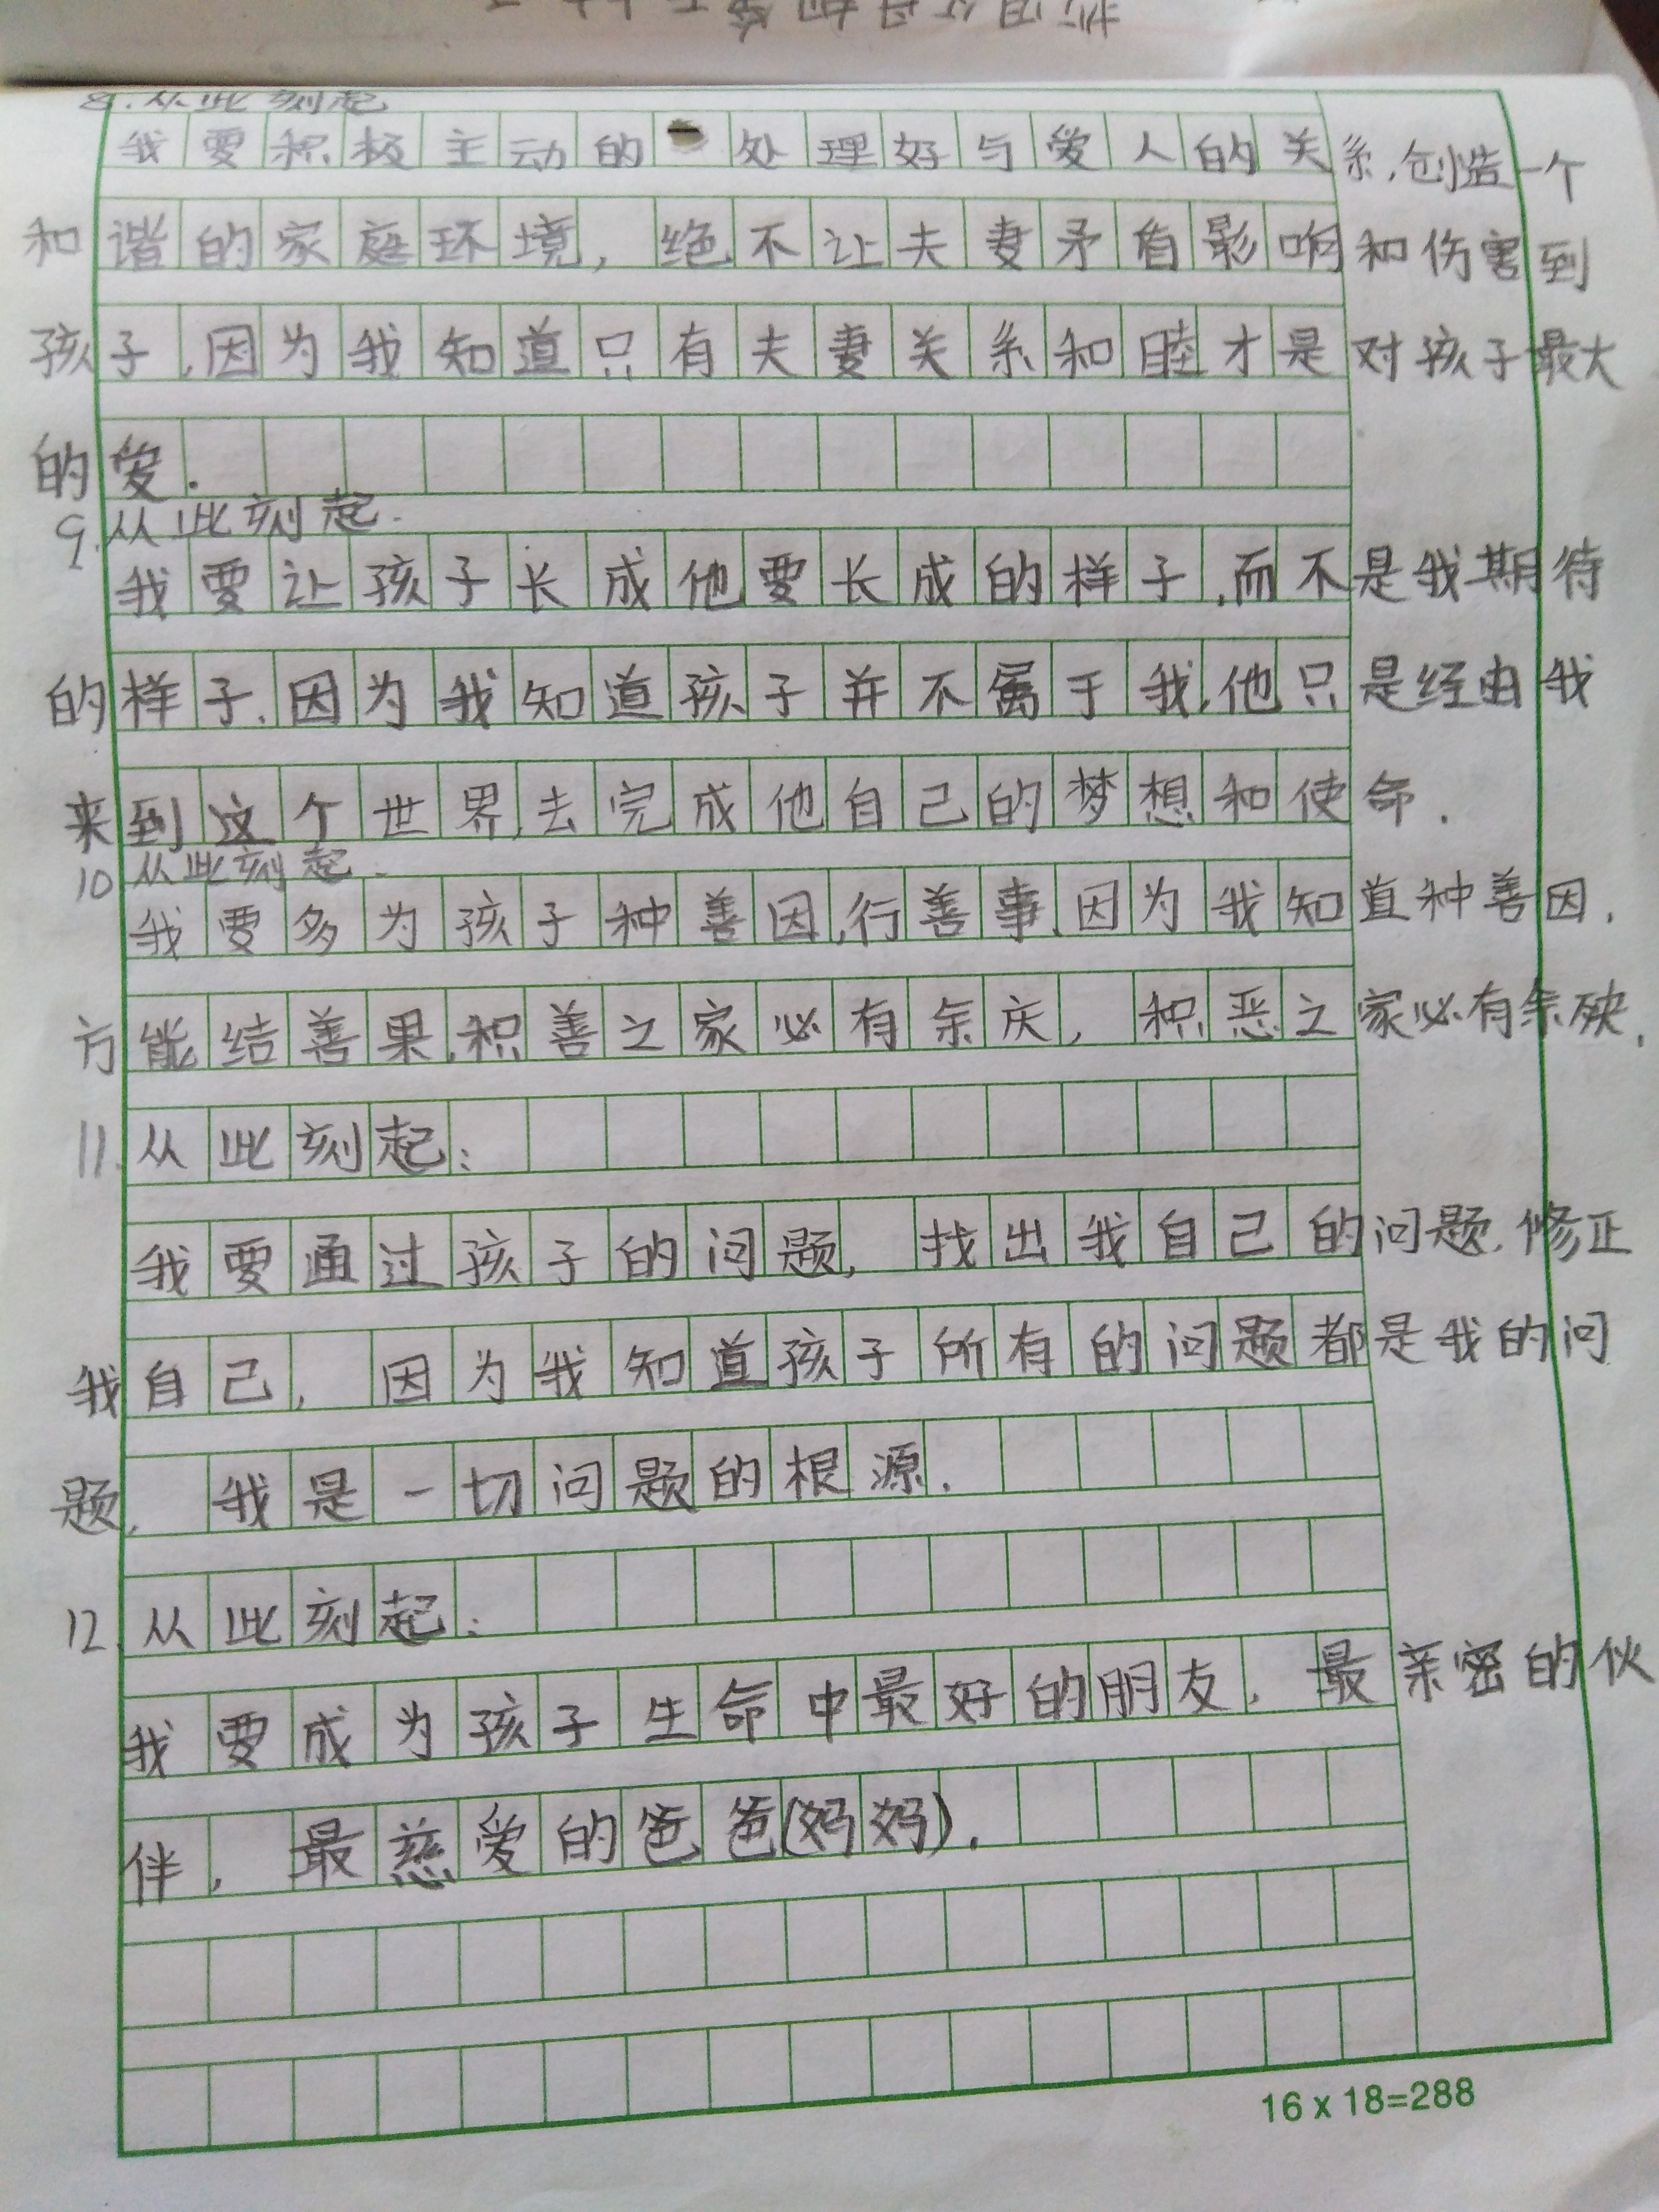 8.从此刻起
我要积极主动的处理好与爱人的关系,创造一个
和谐的家庭环境,绝不让夫妻矛盾影响和伤害到
孩子,因为我知道只有夫妻关系和睦才是对孩子最大
的爱.
9.从此刻起.
我要让孩子长成他要长成的样子,而不是我期待
的样子.因为我知道孩子并不属于我,他只是经由我
来到这个世界,去完成他自己的梦想和使命.
10从此刻起.
我要多为孩子种善因,行善事,因为我知道种善因,
方能结善果,积善之家必有余庆,积恶之家必有余殃,
11.从此刻起:
我要通过孩子的问题,找出我自己的问题,修正
我自己,因为我知道孩子所有的问题都是我的问
题,我是一切问题的根源.
12.从此刻起:
我要成为孩子生命中最好的朋友,最亲密的伙
伴,最慈爱的爸爸(妈妈).
16 x 18=288